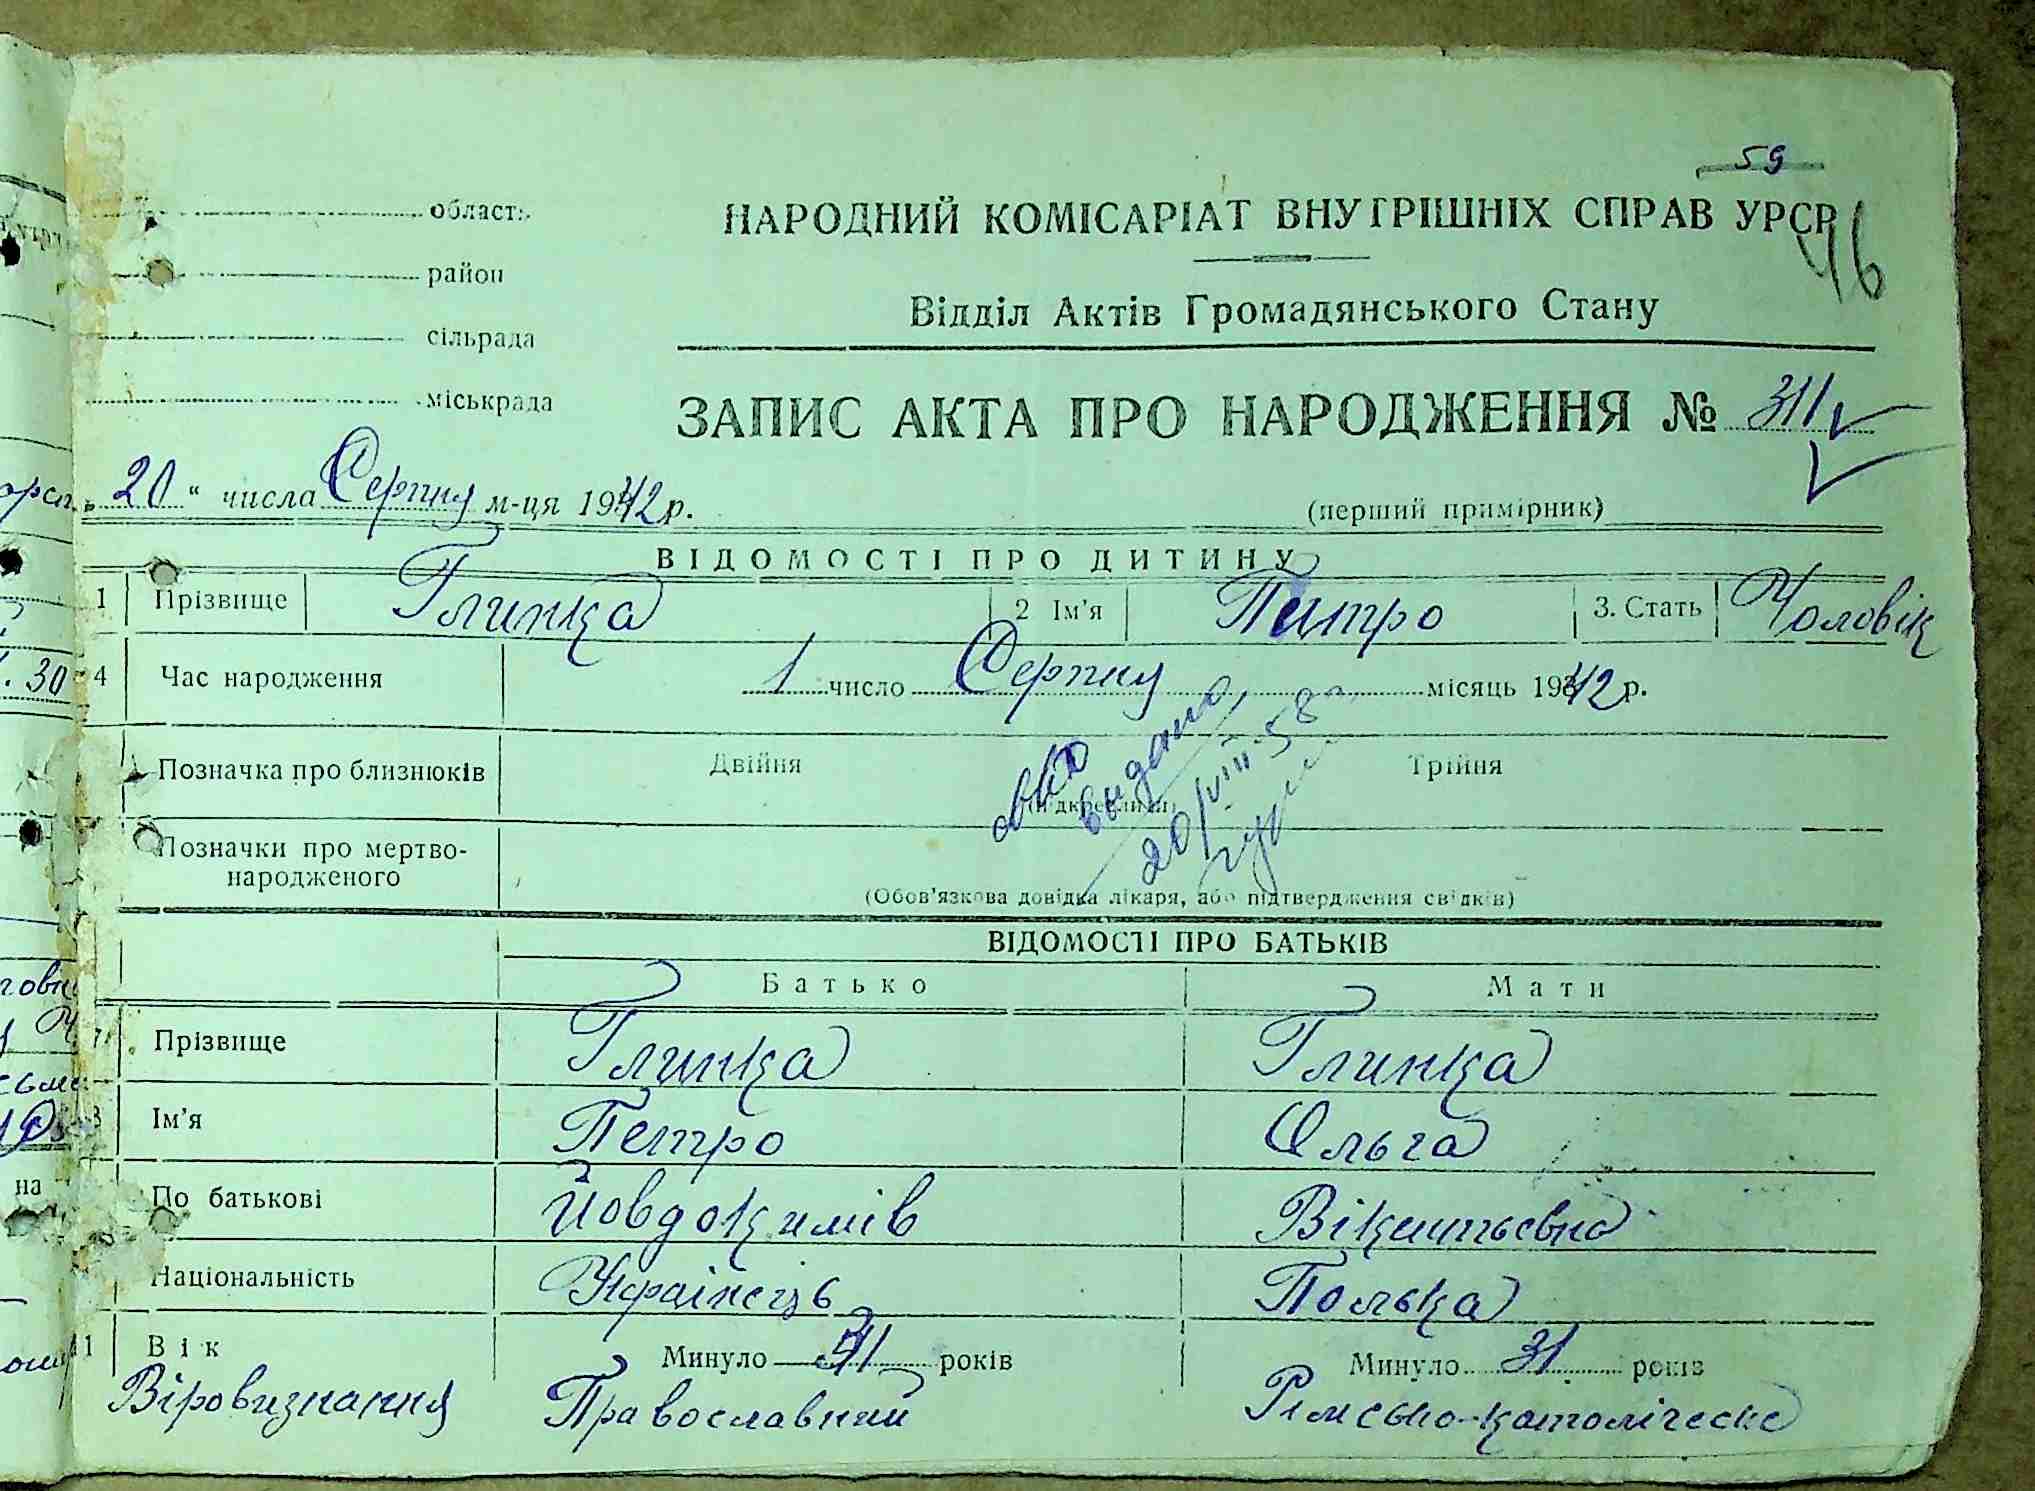 59
46
область
район
сільрада
міськрада
НАРОДНИЙ КОМІСАРІАТ ВНУТРІШНІХ СПРАВ УРСР
Відділ Актів Громадянського Стану
ЗАПИС АКТА ПРО НАРОДЖЕННЯ № 311
„20“ числа Серпня м-ця 1942 р.
(перший примірник)
ВІДОМОСТІ ПРО ДИТИНУ
1 Прізвище Глинка 2 Ім'я Петро 3. Стать Чоловік
4 Час народження 1 число Серпня місяць 1942 р.
Позначка про близнюків Двійня Трійня
(підкреслити)
выдано
20/VIII-58
Позначки про мертво-
народженого
(Обов'язкова довідка лікаря, або підтвердження свідків)
ВІДОМОСТІ ПРО БАТЬКІВ
Батько Мати
7 Прізвище Глинка Глинка
8 Ім'я Петро Ольга
По батькові Йовдокимів Вікентьевна
Національність Українець Полька
11 Вік Минуло 31 років Минуло 31 років
Віровизнання Православний Римсько-католіческе